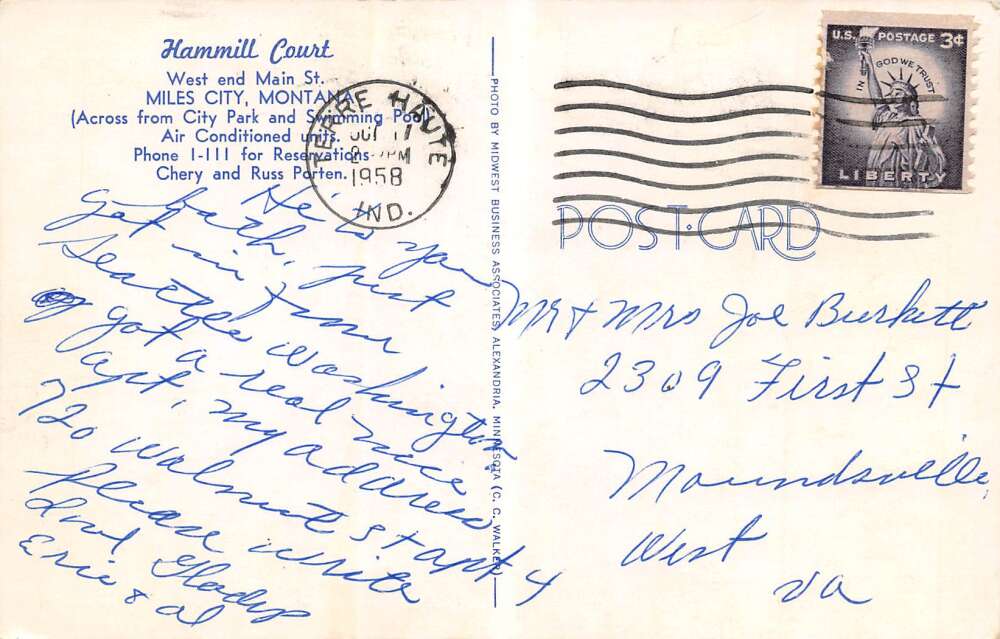 Hammill Court
West end Main St.
MILES CITY, MONTANA
(Across from City Park and Swimming Pool)
Air Conditioned units.
Phone 1-111 for Reservations
Chery and Russ Porten.
TERRE HAUTE
PM
1958
IND.
U.S. POSTAGE 3¢
IN GOD WE TRUST
LIBERTY
POST-CARD
PHOTO BY MIDWEST BUSINESS ASSOCIATES, ALEXANDRIA, MINNESOTA (C. C. WALKER)
to you
both, just
got in from
Seattle Washington
got a real nice
apt, my address
720 Walnut St apt 4
Please write
Love Gladys
Eric & al
Mr & Mrs Joe Burkett
2309 First St
Moundsville,
West
Va